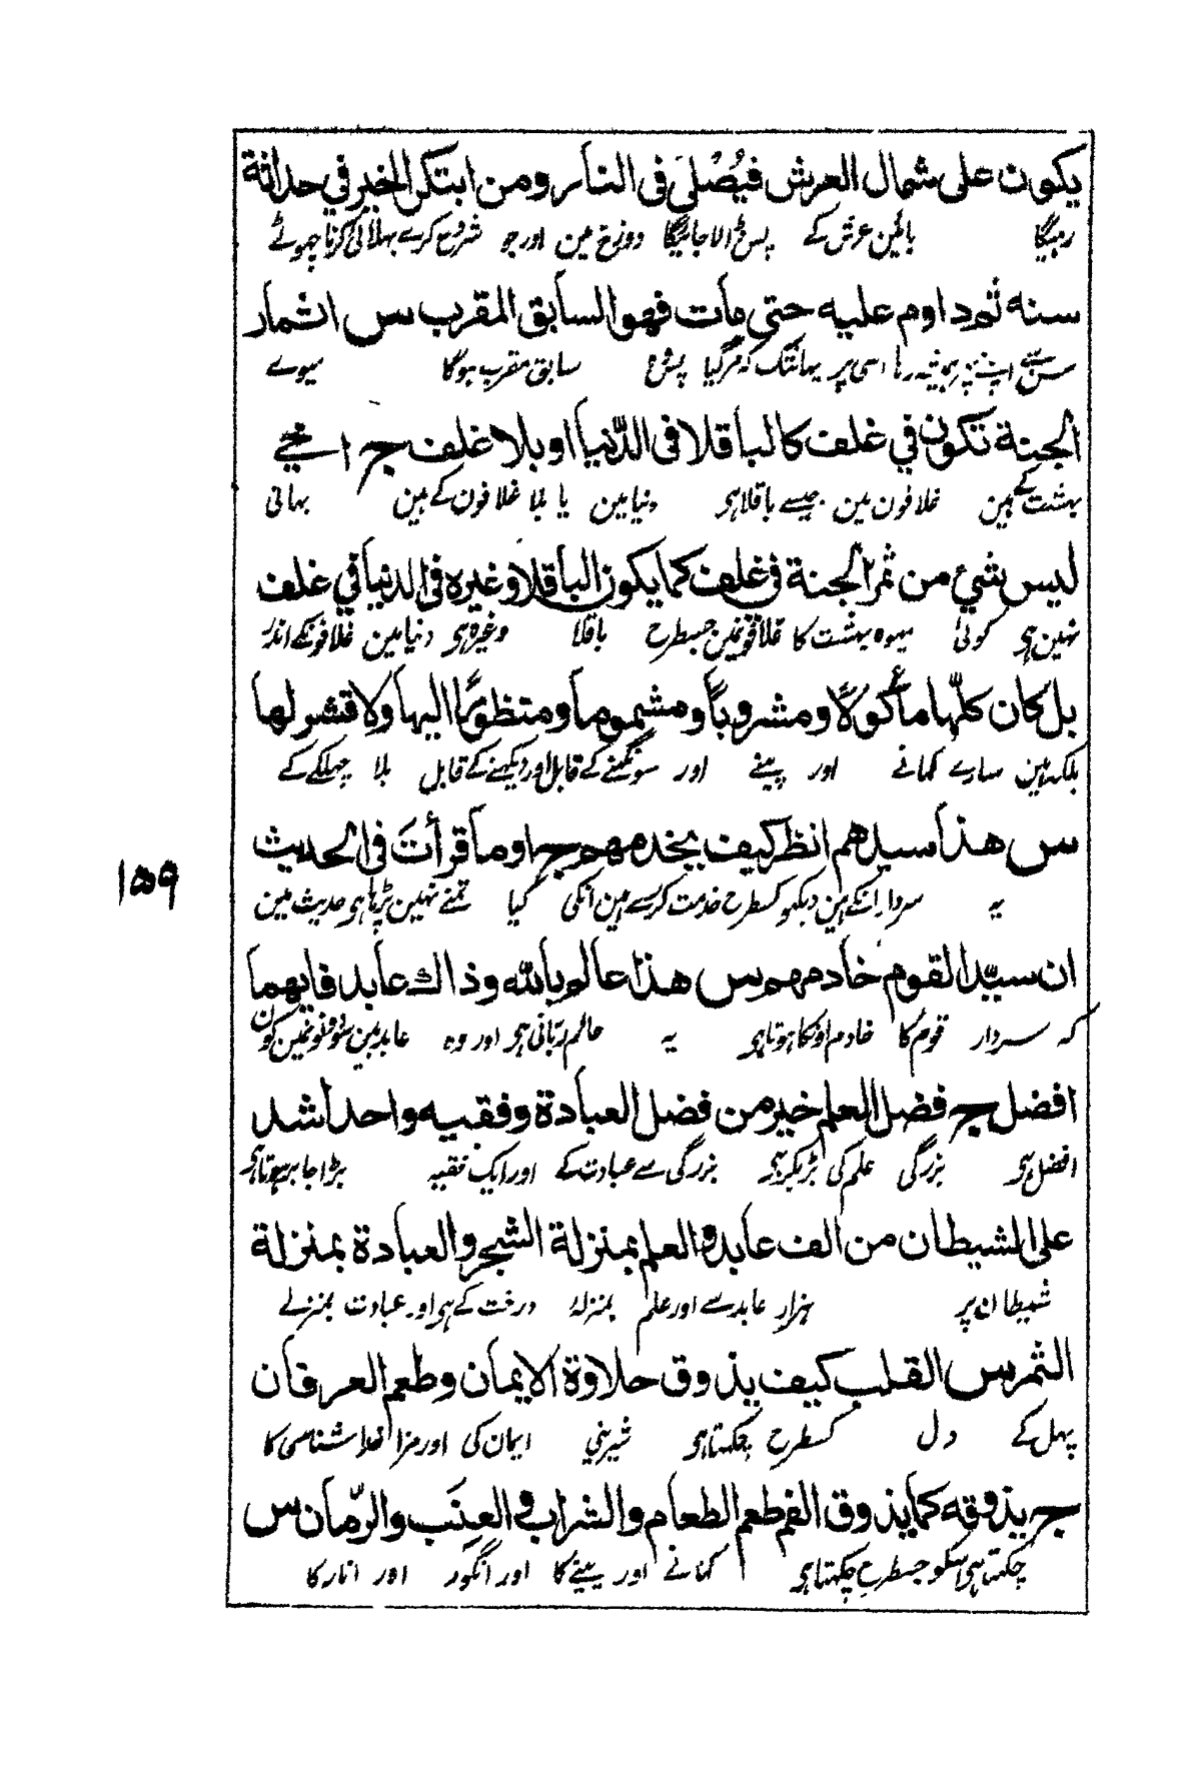 يكون على شمال العرش فيُصْلىَ فى النار ومن ابتكر الخير في حداثة
رہیگا بائین عرش کے پس ڈالا جائیگا دوزخ مین اور جو شروع کرے بھلائی کرنا چھوٹے
سنه ثم داوم عليه حتى مات فهو السابق المقرب س اثمار
سن سے اپنے پھر ہمیشہ رہا اسی پر یہانتک کہ مرگیا پس وہ سابق مقرب ہوگا میوے
الجنة تكون في غلف كالباقلا فى الدّنيا او بلا غلف ج اخي
بہشت کے ہین غلافون مین جیسے باقلا ہی دنیا مین یا بلا غلافون کے ہین بھائی
ليس شيء من ثمر الجنة فى غلف كما يكون الباقلا وغيره فى الدنيا في غلف
نہین ہی کوئی میوہ بہشت کا غلافونمین جسطرح باقلا وغیرہ ہی دنیا مین غلافونکے اندر
بل كان كلّها مأكولًا ومشروباً ومشموما ومنظورًا اليها ولا قشر لها
بلکہ ہین سارے کھانے اور پینے اور سونگھنے کے قابل اور دیکھنے کے قابل بلا چھلکے کے
س هذا سيدهم انظر كيف يخدمهم ج اوما قرأتَ فى الحديث
یہ سردار انکے ہین دیکھو کسطرح خدمت کررہے ہین انکی کیا تمنے نہین پڑہا ہو حدیث مین
۱۵۹
ان سيّد القوم خادمهم س هذا عالم بالله وذاك عابد فايهما
کہ سردار قوم کا خادم اونکا ہوتا ہی یہ عالم ربّانی ہی اور وہ عابد ہین سو دونونمین کون
افضل ج فضل العلم خير من فضل العبادة وفقيه واحد اشد
افضل ہی بزرگی علم کی بڑہکر ہی بزرگی سے عبادت کے اور ایک فقیہ بڑا جابر ہوتا ہی
على الشيطان من الف عابد والعلم بمنزلة الشجر والعبادة بمنزلة
شیطان پر ہزار عابد سے اور علم بمنزلۂ درخت کے ہی اور عبادت بمنزلے
الثمر س القلب كيف يذوق حلاوة الايمان وطعم العرفان
پھل کے دل کسطرح چکھتا ہی شیرینی ایمان کی اور مزا خدا شناسی کا
ج يذوقه كما يذوق الفم طعم الطعام والشراب والعِنَب والرّمان س
چکھتا ہی اسکو جسطرح چکھتا ہی کھانے اور پینے کا اور انگور اور انار کا